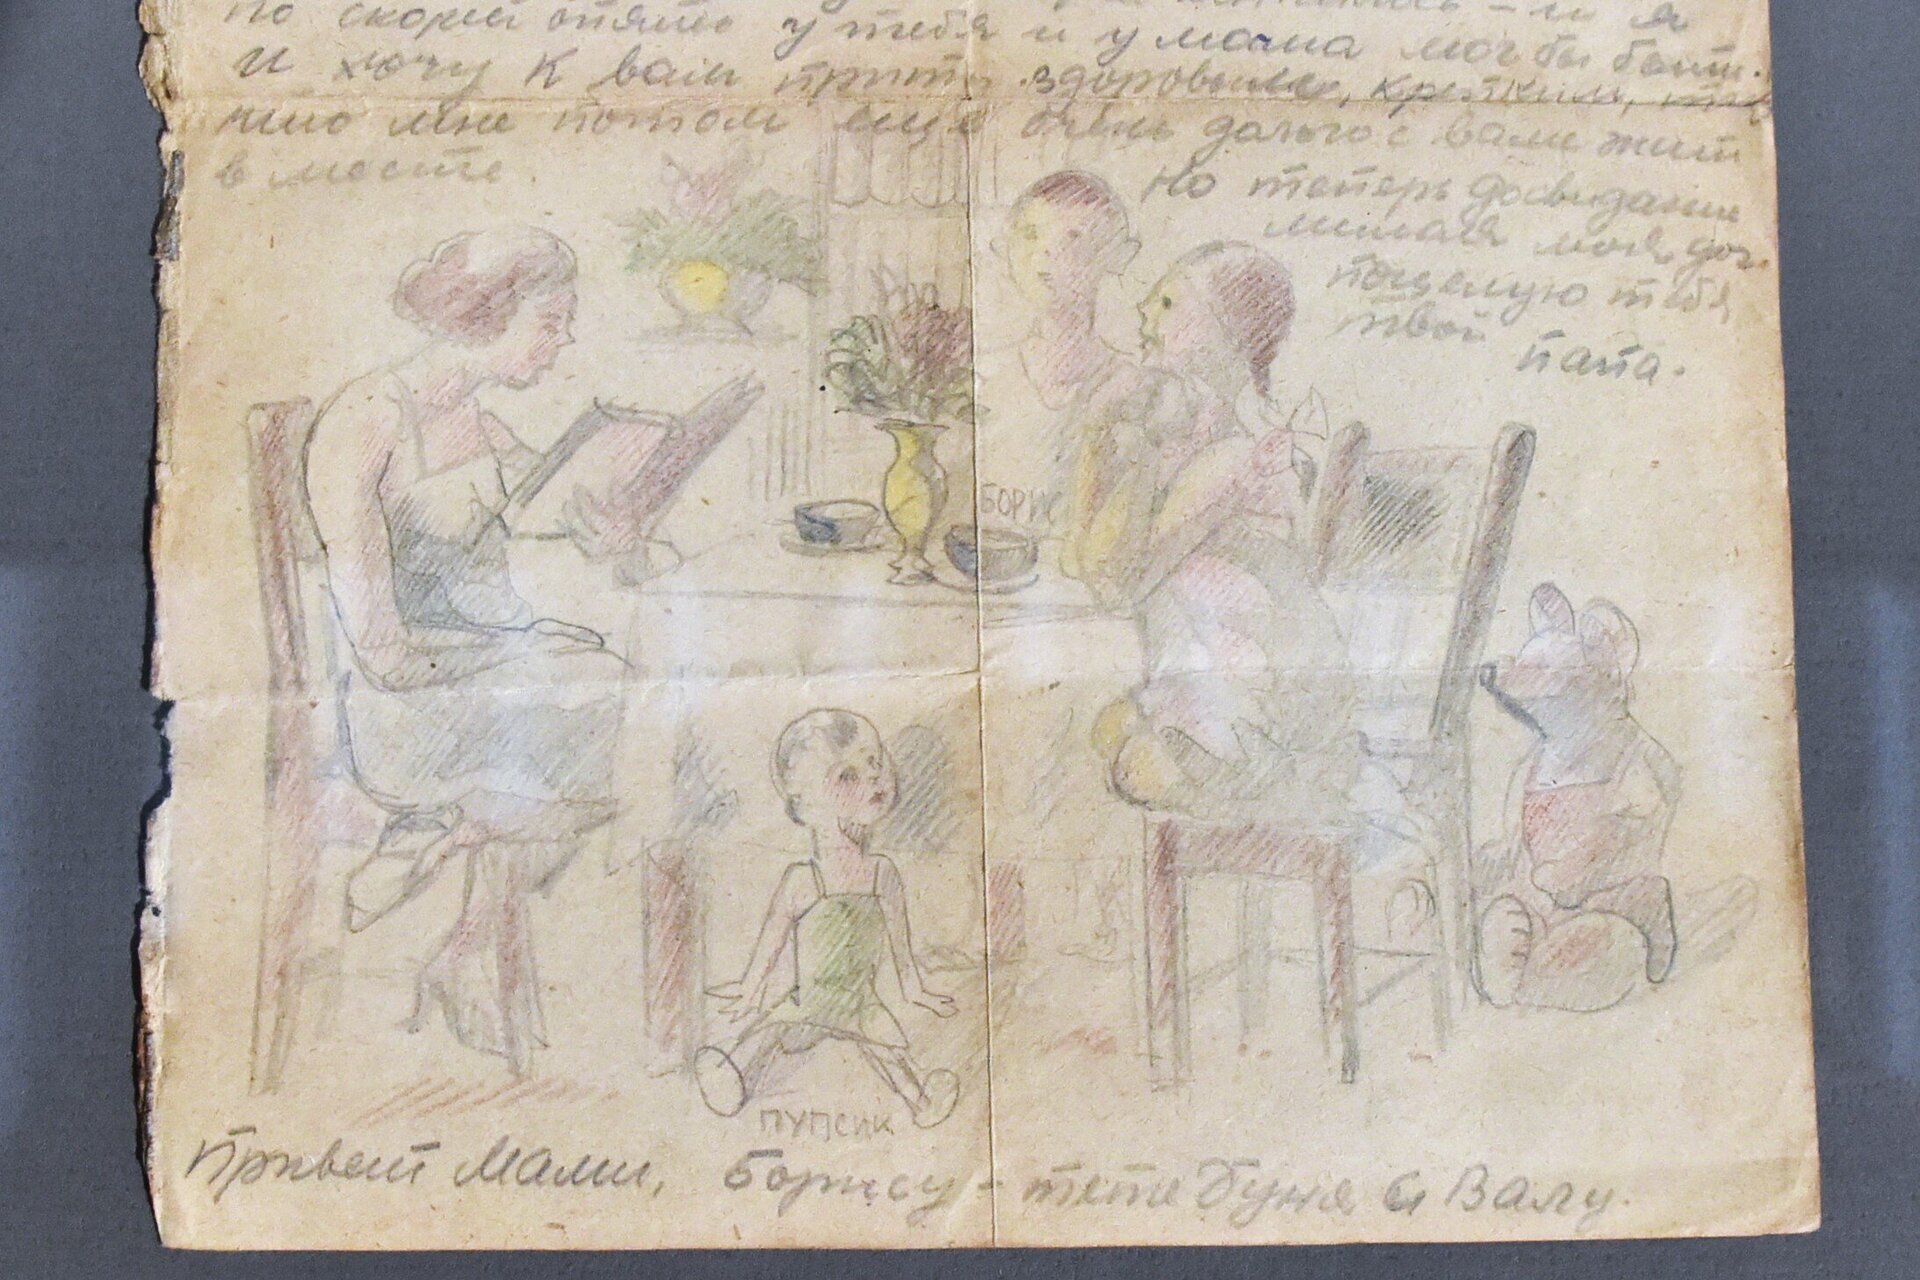 по скорей опять у тебя и у мама мог бы быть.
И хочу к вам притти здоровым, крепким,
мне потом еще очень долго с вами жить
в месте.
Но теперь досвидание
милая моя доч.
поцелую тебя
твой папа.
БОРИС
ПУПСИК
Привет Мами, Борису - тете Буня и Валу.